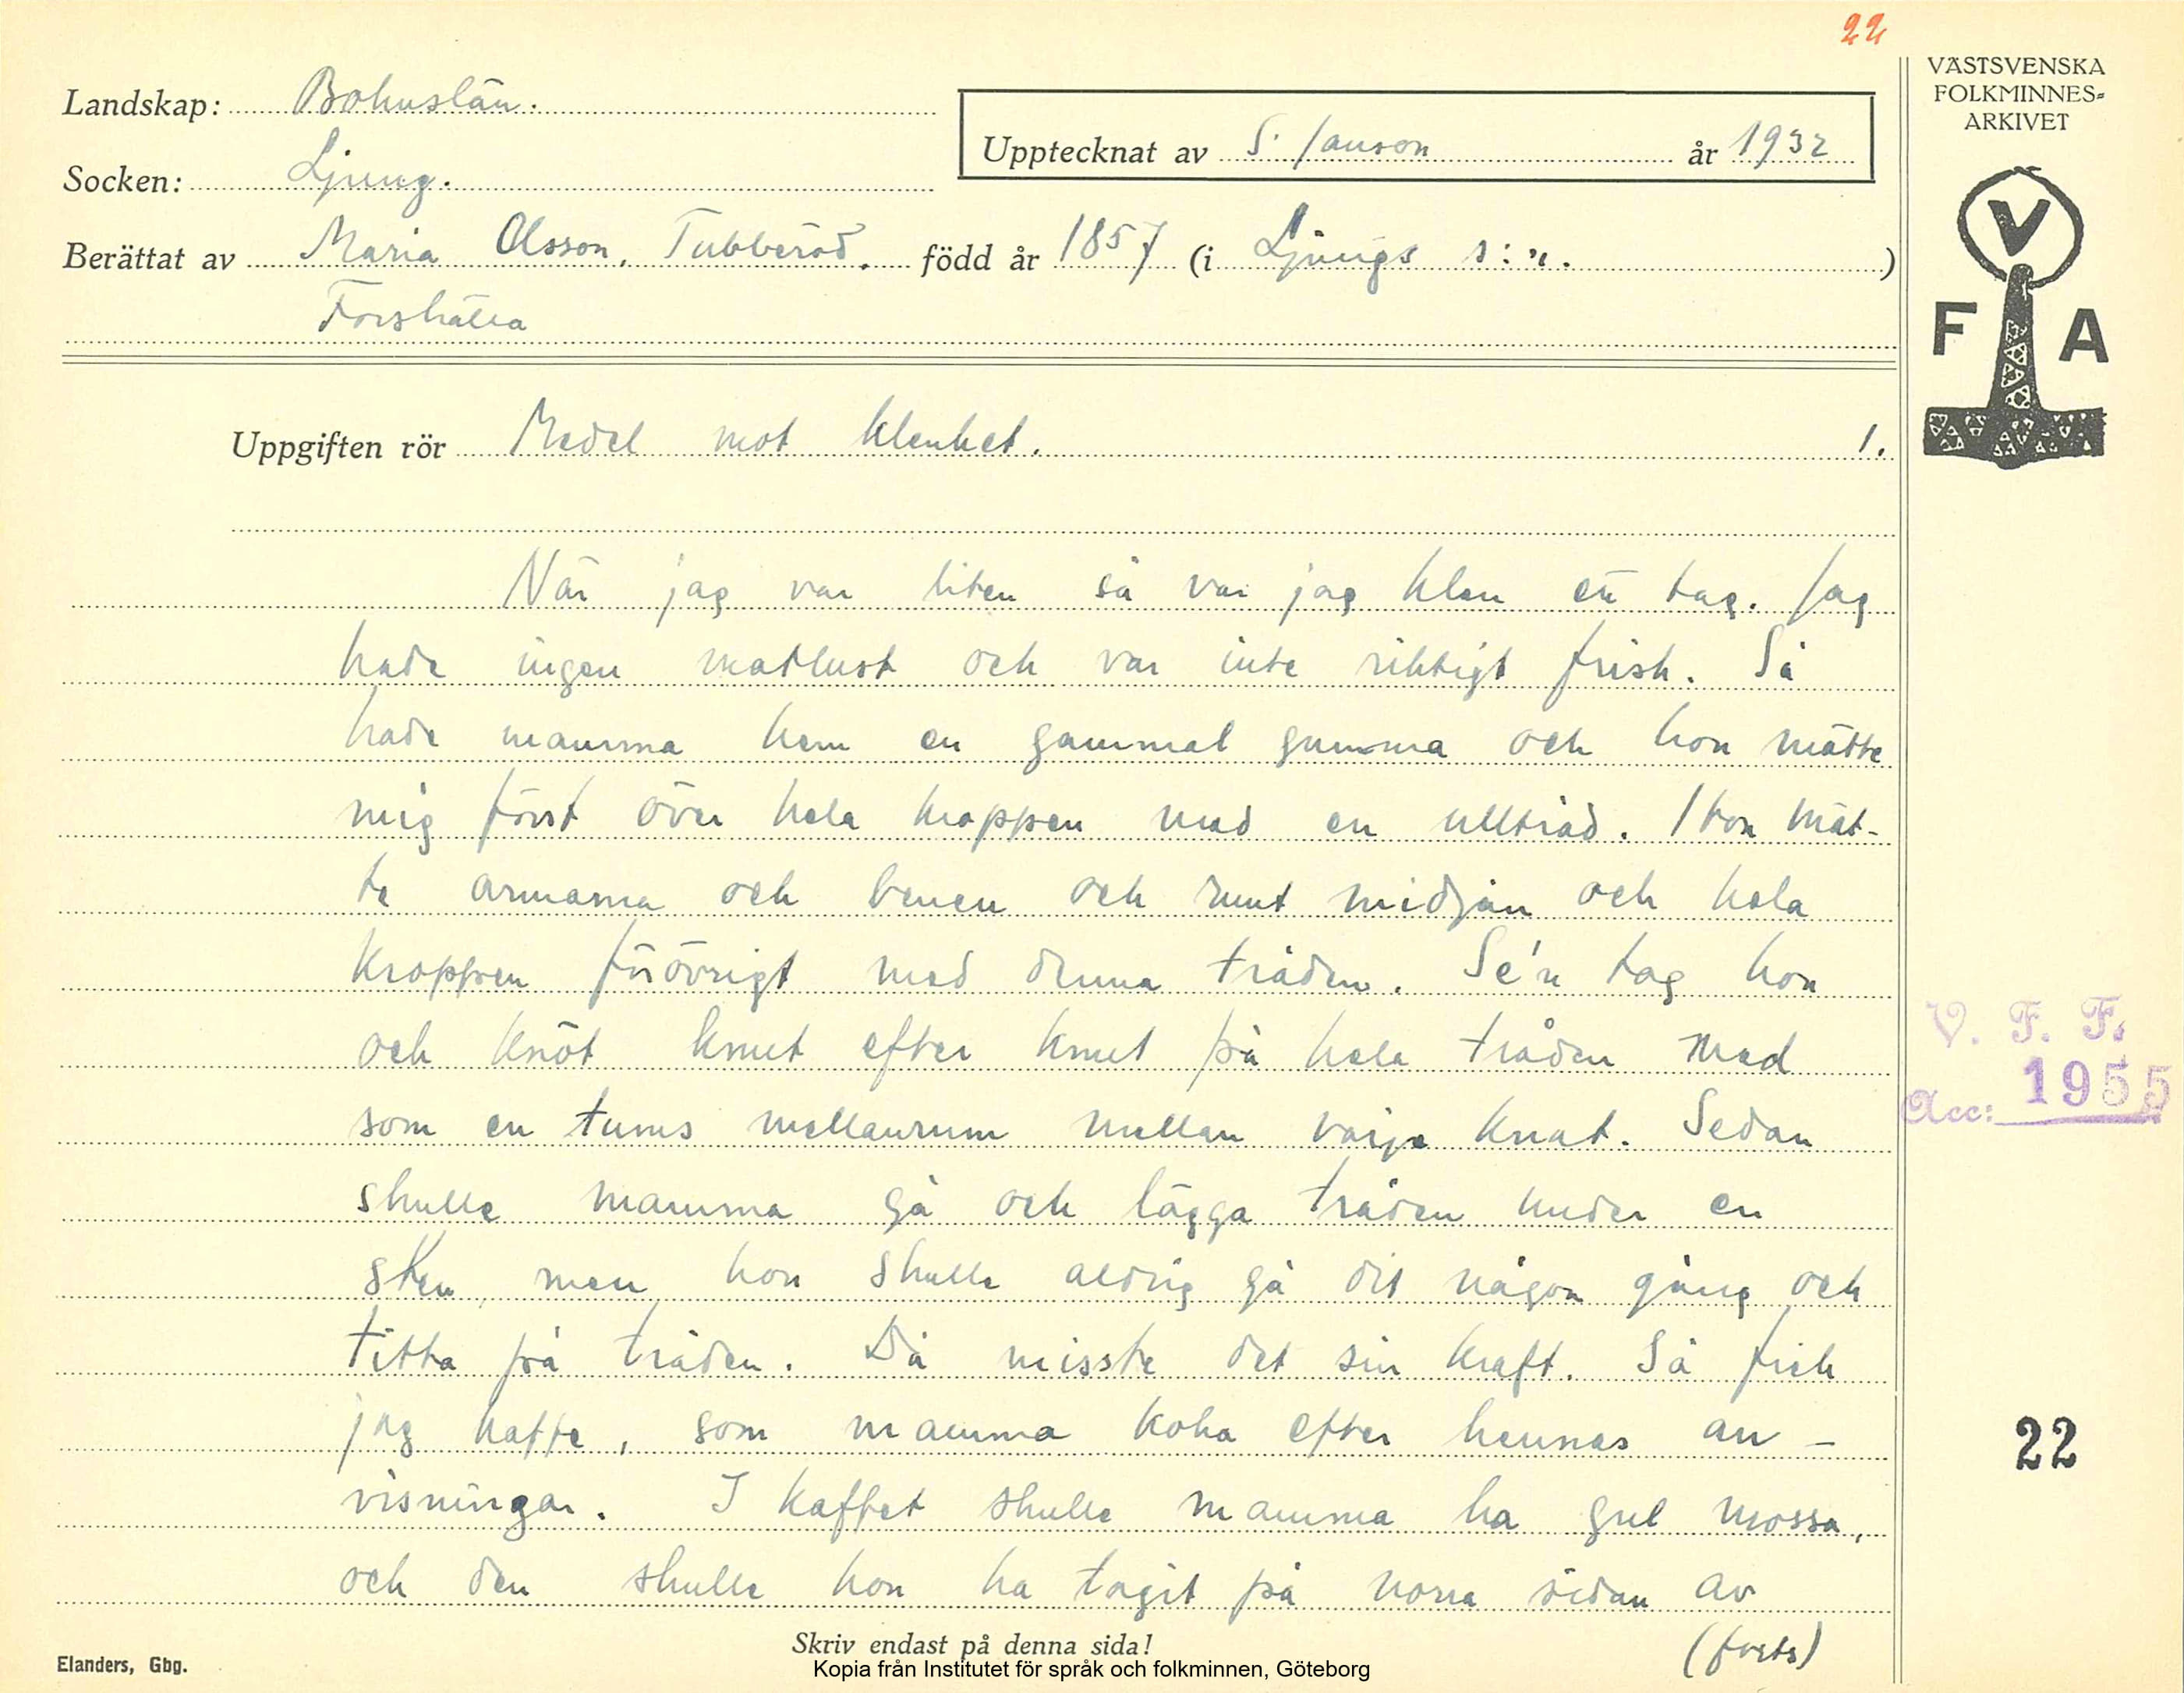 22
VÄSTSVENSKA
FOLKMINNES=
ARKIVET
V
F A
Landskap: Bohuslän.
Upptecknat av S. Janson år 1932
Socken: Ljung.
Berättat av Maria Olsson, Tubberöd. född år 1857 (i Ljungs s:n.)
Forshälla
Uppgiften rör Medel mot klenhet. 1.
När jag var liten så var jag klen ett tag. Jag
hade ingen matlust och var inte riktigt frisk. Så
hade mamma hem en gammal gumma och hon mätte
mig först över hela kroppen med en ulltråd. Hon mät-
te armarna och benen och runt midjan och hela
kroppen förövrigt med denna tråden. Se'n tog hon
och knöt knut efter knut på hela tråden med
som en tums mellanrum mellan varje knut. Sedan
skulle mamma gå och lägga tråden under en
sten, men hon skulle aldrig gå dit någon gång och
titta på tråden. Då misste det sin kraft. Så fick
jag kaffe, som mamma koka efter hennes an-
visningar. I kaffet skulle mamma ha gul mossa,
och den skulle hon ha tagit på norra sidan av
(forts)
V. F. F.
Acc: 1955
22
Skriv endast på denna sida!
Elanders, Gbg.
Kopia från Institutet för språk och folkminnen, Göteborg